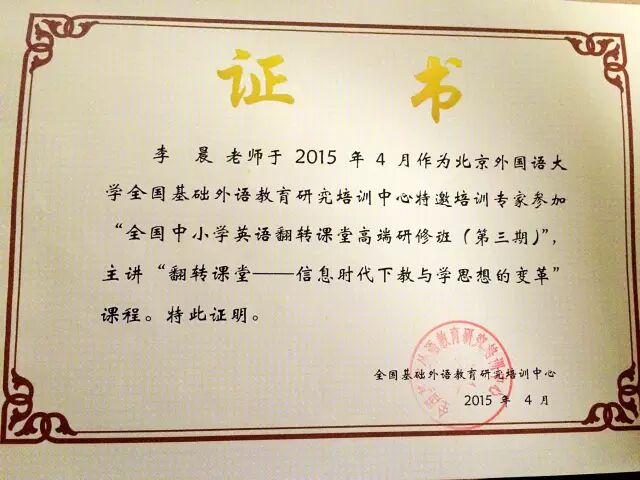 证 书
李 晨 老师于 2015 年 4 月作为北京外国语大
学全国基础外语教育研究培训中心特邀培训专家参加
“全国中小学英语翻转课堂高端研修班（第三期）”，
主讲“翻转课堂——信息时代下教与学思想的变革”
课程。特此证明。
语教育研究培训
全国基础外语教育研究培训中心
2015 年 4 月